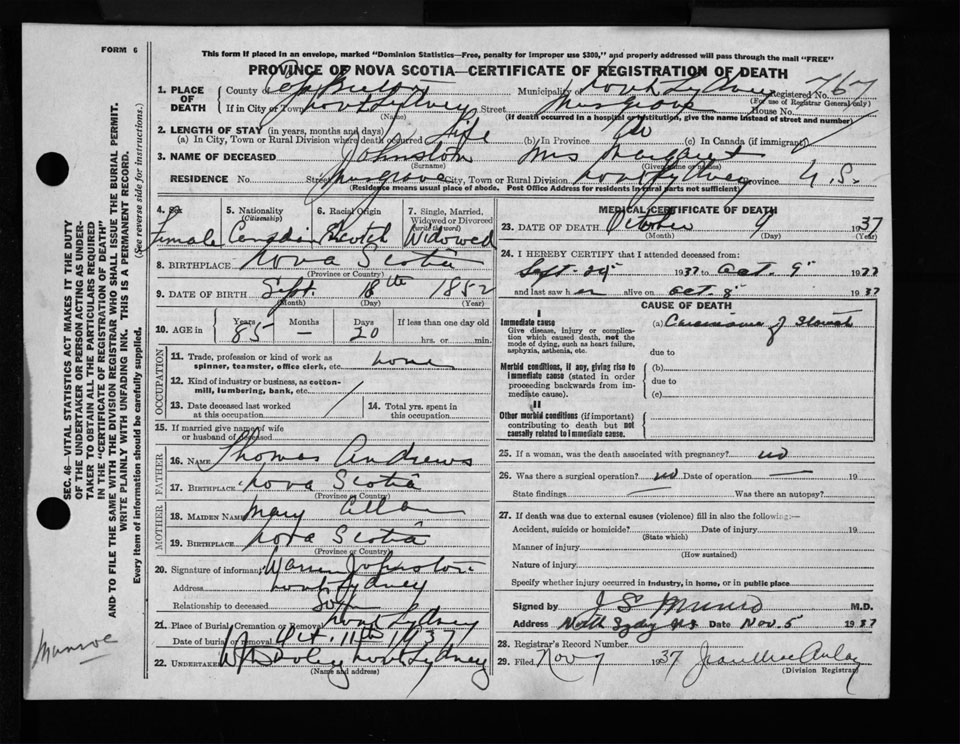 FORM 6
This form if placed in an envelope, marked "Dominion Statistics—Free, penalty for improper use $300," and properly addressed will pass through the mail "FREE"
PROVINCE OF NOVA SCOTIA—CERTIFICATE OF REGISTRATION OF DEATH
1. PLACE OF DEATH
County of Cape Breton Municipality of North Sydney Registered No. 767
(For use of Registrar General only)
If in City or Town North Sydney Street Musgrave House No.
(Name) (If death occurred in a hospital or institution, give the name instead of street and number)
2. LENGTH OF STAY (in years, months and days)
(a) In City, Town or Rural Division where death occurred Life (b) In Province (c) In Canada (if immigrant)
3. NAME OF DECEASED Johnston Mrs Margaret
(Surname) (Given names)
RESIDENCE No. Street Musgrave City, Town or Rural Division North Sydney Province N.S.
(Residence means usual place of abode. Post Office Address for residents in rural parts not sufficient)
4. Sex Female
5. Nationality (Citizenship)
6. Racial Origin Scotch
7. Single, Married, Widowed or Divorced (write the word) Widowed
8. BIRTHPLACE Nova Scotia
(Province or Country)
9. DATE OF BIRTH Sept. 18th 1852
(Month) (Day) (Year)
10. AGE in Years 85 Months — Days 20 If less than one day old
hrs. or min.
OCCUPATION
11. Trade, profession or kind of work as spinner, teamster, office clerk, etc. none
12. Kind of industry or business, as cotton-mill, lumbering, bank, etc.
13. Date deceased last worked at this occupation
14. Total yrs. spent in this occupation
15. If married give name of wife or husband of deceased
FATHER
16. NAME Thomas Andrews
17. BIRTHPLACE Nova Scotia
(Province or Country)
MOTHER
18. MAIDEN NAME Mary
19. BIRTHPLACE Nova Scotia
(Province or Country)
20. Signature of informant Warren Johnston
Address North Sydney
Relationship to deceased Son
21. Place of Burial, Cremation or Removal North Sydney
Date of burial or removal Oct. 11th 1937
22. UNDERTAKER North Sydney
(Name and address)
MEDICAL CERTIFICATE OF DEATH
23. DATE OF DEATH October 9 1937
(Month) (Day) (Year)
24. I HEREBY CERTIFY that I attended deceased from:
Sept. 1937 to Oct. 9 1937
and last saw her alive on Oct. 8 1937
CAUSE OF DEATH
I
Immediate cause (a) Carcinoma of Stomach
Give disease, injury or complication which caused death, not the mode of dying, such as heart failure, asphyxia, asthenia, etc.
due to
Morbid conditions, if any, giving rise to immediate cause (stated in order proceeding backwards from immediate cause).
(b)
due to
(c)
II
Other morbid conditions (if important) contributing to death but not causally related to immediate cause.
25. If a woman, was the death associated with pregnancy? no
26. Was there a surgical operation? no Date of operation 19
State findings — Was there an autopsy?
27. If death was due to external causes (violence) fill in also the following:—
Accident, suicide or homicide? Date of injury 19
(State which)
Manner of injury
(How sustained)
Nature of injury
Specify whether injury occurred in industry, in home, or in public place
Signed by J S Munro M.D.
Address North Sydney N.S Date Nov. 5 1937
28. Registrar's Record Number
29. Filed Nov 7 1937 Jean MacAulay
(Division Registrar)
SEC. 46—VITAL STATISTICS ACT MAKES IT THE DUTY
OF THE UNDERTAKER OR PERSON ACTING AS UNDER-
TAKER TO OBTAIN ALL THE PARTICULARS REQUIRED
IN THE "CERTIFICATE OF REGISTRATION OF DEATH"
AND TO FILE THE SAME WITH THE DIVISION REGISTRAR WHO SHALL ISSUE THE BURIAL PERMIT.
WRITE PLAINLY WITH UNFADING INK. THIS IS A PERMANENT RECORD.
Every item of information should be carefully supplied. (See reverse side for instructions.)
Munroe